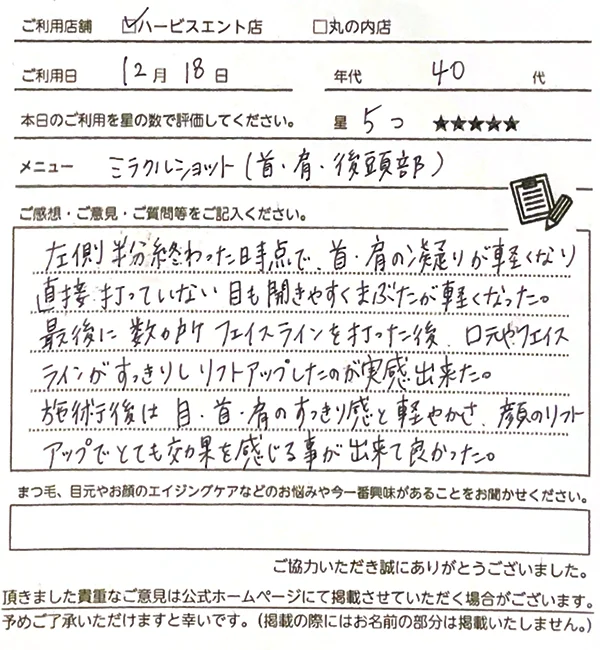 ご利用店舗 ☑ハービスエント店 □丸の内店
ご利用日 12月 18日 年代 40 代
本日のご利用を星の数で評価してください。 星 5つ ★★★★★
メニュー ミラクルショット(首・肩・後頭部)
ご感想・ご意見・ご質問等をご記入ください。
左側半分終わった時点で、首・肩の凝りが軽くなり
直接打っていない目も開きやすくまぶたが軽くなった。
最後に数か所フェイスラインを打った後、口元やフェイス
ラインがすっきりしリフトアップしたのが実感出来た。
施術後は目・首・肩のすっきり感と軽やかさ、顔のリフト
アップでとても効果を感じる事が出来て良かった。
まつ毛、目元やお顔のエイジングケアなどのお悩みや今一番興味があることをお聞かせください。
ご協力いただき誠にありがとうございました。
頂きました貴重なご意見は公式ホームページにて掲載させていただく場合がございます。
予めご了承いただけますと幸いです。(掲載の際にはお名前の部分は掲載いたしません。)